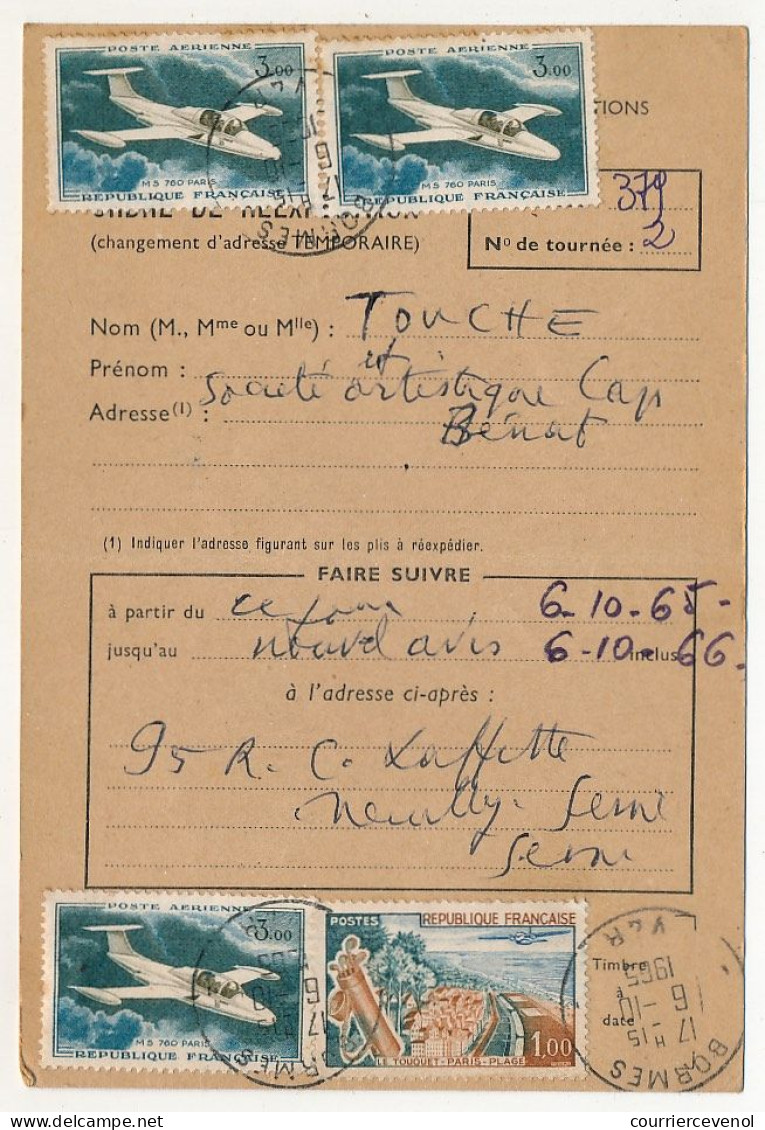 POSTE AERIENNE
3.00
MS 760 PARIS
REPUBLIQUE FRANÇAISE
POSTE AERIENNE
3.00
MS 760 PARIS
REPUBLIQUE FRANÇAISE
TIONS
379
(changement d'adresse TEMPORAIRE)
Nº de tournée : 2
Nom (M., Mme ou Mlle) : TOUCHE
et
Prénom :
Société artistique Cap
Adresse(1) :
Bénat
(1) Indiquer l'adresse figurant sur les plis à réexpédier.
FAIRE SUIVRE
à partir du ce jour 6-10-65-
jusqu'au nouvel avis 6-10-66 inclus
à l'adresse ci-après :
95 R. C. Laffitte
Neuilly-Seine
Seine
POSTE AERIENNE
3.00
MS 760 PARIS
REPUBLIQUE FRANÇAISE
POSTES
REPUBLIQUE FRANÇAISE
1,00
LE TOUQUET-PARIS-PLAGE
Timbre
à
date
BORMES
17 H 15
6-10
1965
VAR
courriercevenol.com